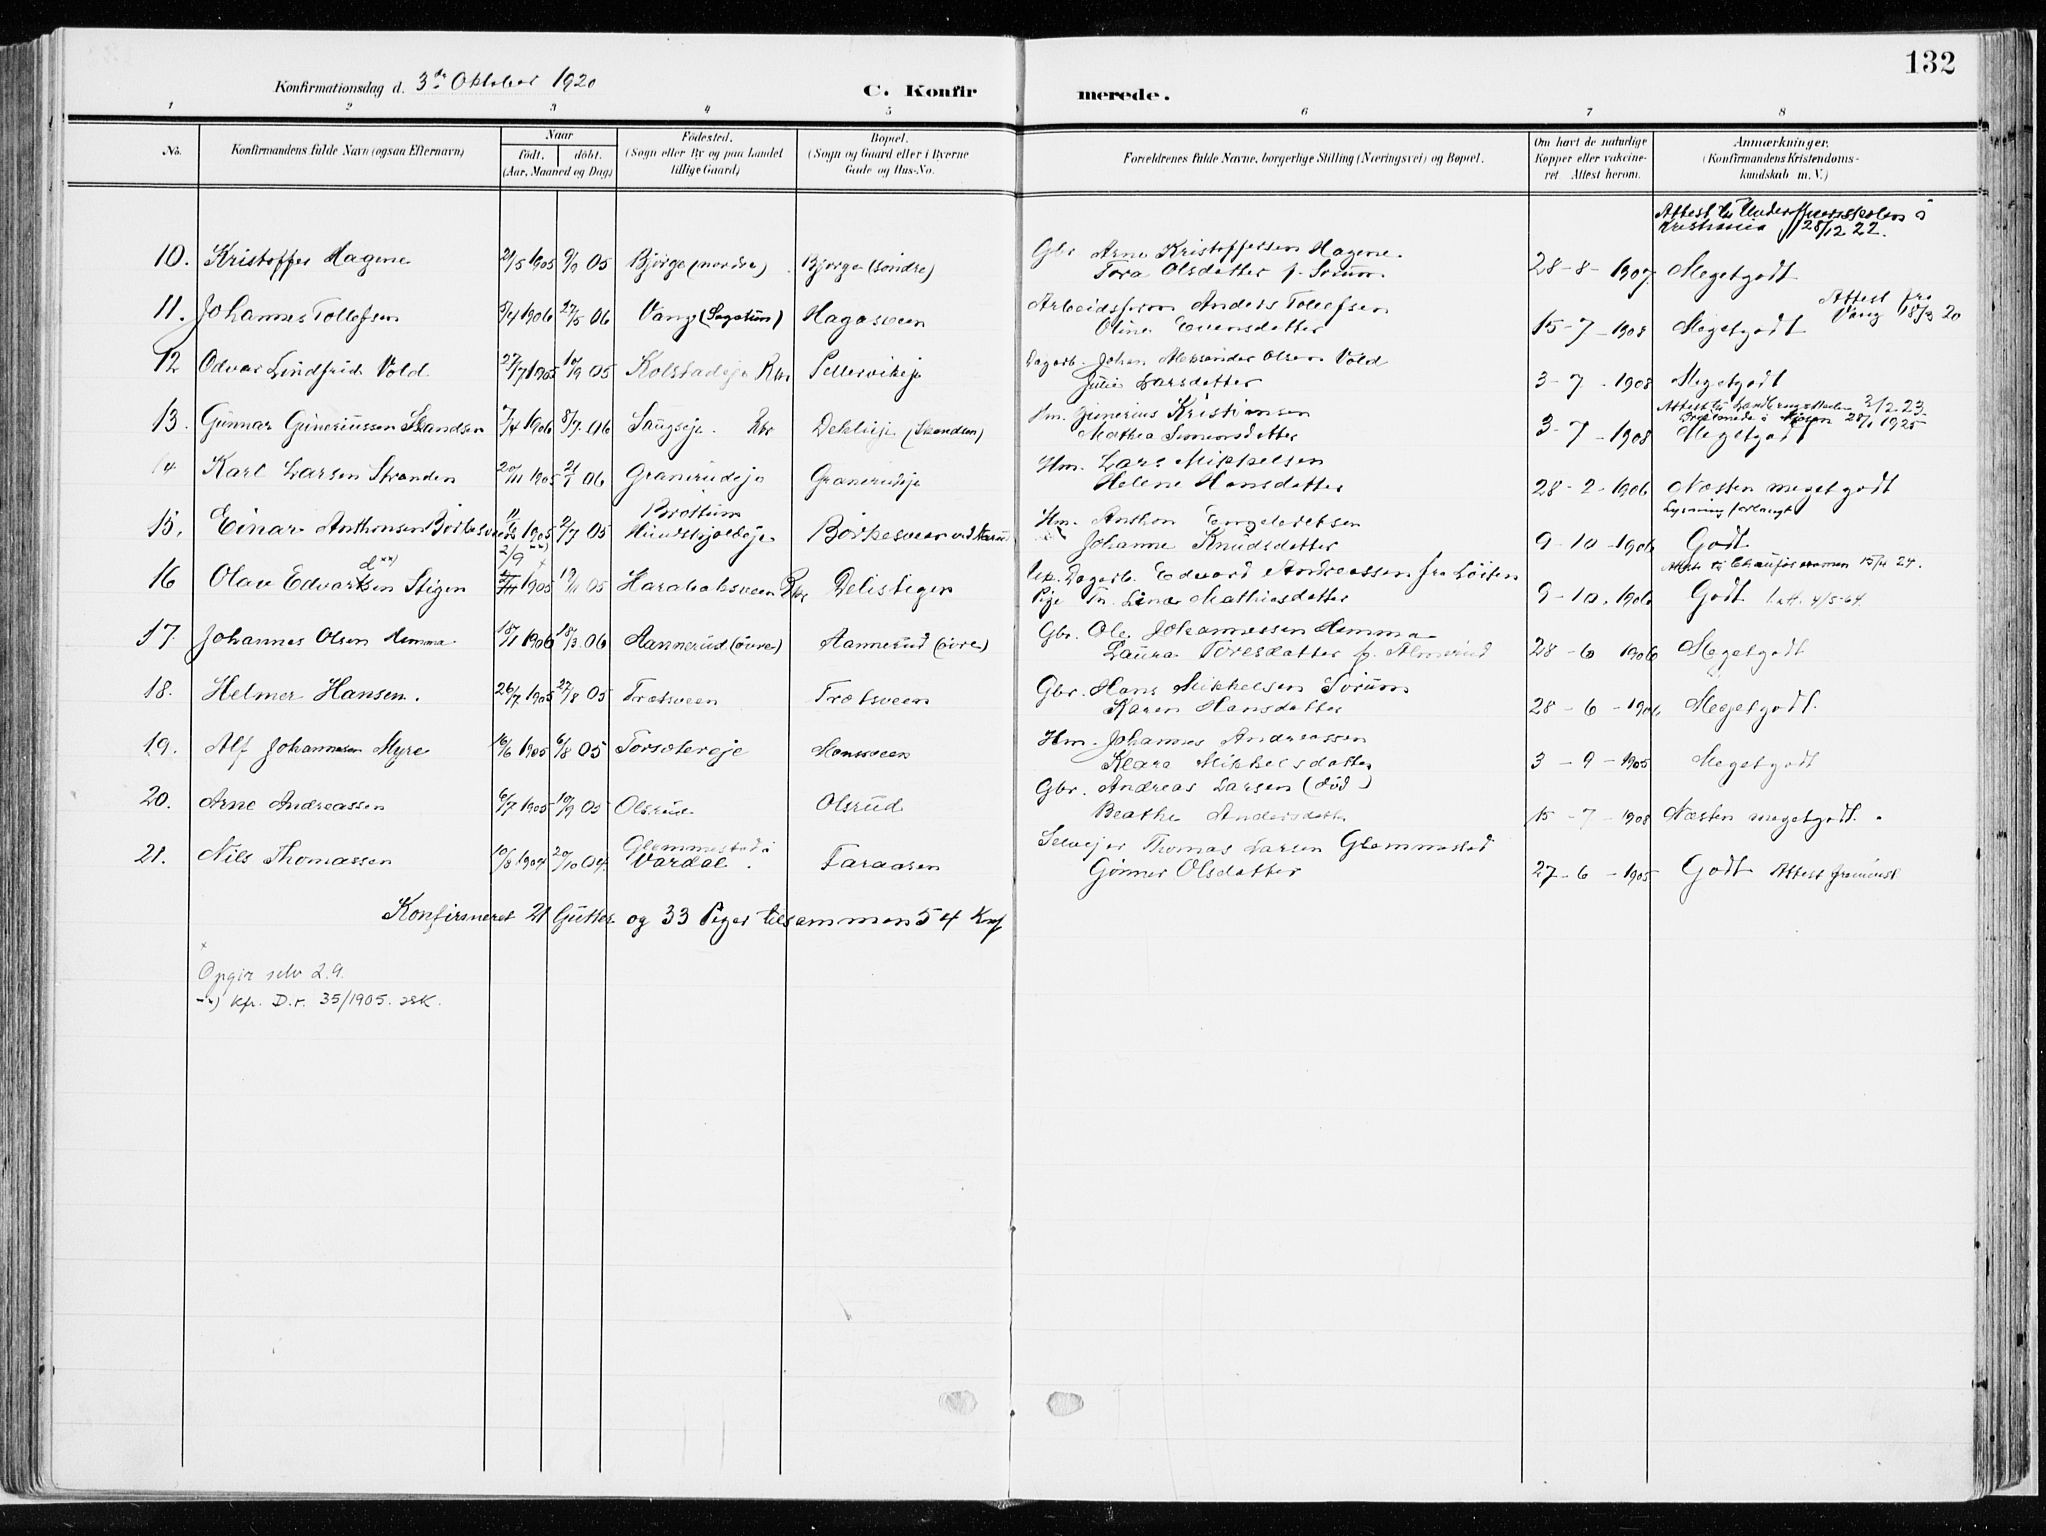 132
Konfirmationsdag d. 3de Oktober 1920
C. Konfirmerede.
1 2 3 4 5 6 7 8
No.
Konfirmandens fulde Navn (ogsaa Efternavn)
Naar
født. døbt.
(Aar, Maaned og Dag)
Fødested.
(Sogn eller By og paa Landet
tillige Gaard)
Bopæl.
(Sogn og Gaard eller i Byerne
Gade og Hus-No.
Forældrenes fulde Navne, borgerlige Stilling (Næringsvei) og Bopæl.
Om havt de naturlige
Kopper eller vakcine-
ret Attest herom.
Anmærkninger.
(Konfirmandens Kristendoms-
kundskab m. V.)
Attest til
Kristiania 28/12 22.
10. Kristoffer Hagene 21/5 1905 9/9 05 Bjørge (nordre) Bjørge (søndre) Gbr Arne Kristoffersen Hagene 28-8-1907 Megetgodt
Tora Olsdatter f. Sørum
11. Johannes Tollefsen 8/4 1906 27/5 06 Vang (Sagatun) Hagasveen Arbeidsform Anders Tollefsen 15-7-1908 Megetgodt Attest fra Vang 18/9 20
Oline Evensdatter
12 Odvar Lindfrid Vold 27/7 1905 10/9 05 Kolstadeje Rbr Pellervikeje Dagarb. Johan Aleksander Olsen Vold 3-7-1908 Megetgodt
Julie Larsdatter
13. Gunnar Guneriussen Skandsen 7/4 1906 8/7 06 Saugseje Rbr Dehlieje (Skandsen) Hm. Gunerius Kristiansen 3-7-1908 Megetgodt
Mathea Simensdatter
14 Karl Larsen Stranden 20/11 1905 21/1 06 Granerudeje Granerudeje Hm. Lars Mikkelsen 28-2-1906 Næsten megetgodt
Helene Hansdatter
Lysning forlangt
15. Einar Anthonsen Børkesveen 1905 2/7 05 Brøttum Børkesveen Hm. Anthon Engebretsen 9-10-1906 Godt
Johanne Knudsdatter
16 Olav Edvardsen Stigen 2/9 1905 05 Harabaksveen Rbr Delistigen Dagarb. Edvard Andreassen fra Løiten 9-10-1906 Godt 4/5-64
Pige Lina Mathiesdatter
15/4 24.
17. Johannes Olsen Hemma 18/1 1906 18/3 06 Aannerud (øvre) Aannerud (øvre) Gbr. Ole Johannessen Hemma 28-6 1906 Megetgodt
Laura Toresdatter f. Almerud
18. Helmer Hansen. 26/7 1905 27/8 05 Trætsveen Trætsveen Gbr. Hans Mikkelsen Sørum 28-6-1906 Megetgodt
Karen Hansdatter
19. Alf Johannesen Myre 16/6 1905 6/8 05 Torsætereje Monsveen Hm. Johannes Andreassen 3-9-1905 Megetgodt
Klara Mikkelsdatter
20. Arne Andreassen 6/7 1905 10/9 05 Olsrud Olsrud Gbr. Andreas Larsen (død) 15-7-1908 Næsten megetgodt.
Beathe Andersdatter
21. Nils Thomassen 10/8 1904 20/10 04. Glemmestad i Vardal. Faraasen Selvejer Thomas Larsen Glemmestad 27-6-1905 Godt
Gunner Olsdatter
Konfirmeret 21 Gutter og 33 Piger tilsammen 54 Knf
x
Opgir selv 2.9.
xx) Kfr. D.r. 35/1905.